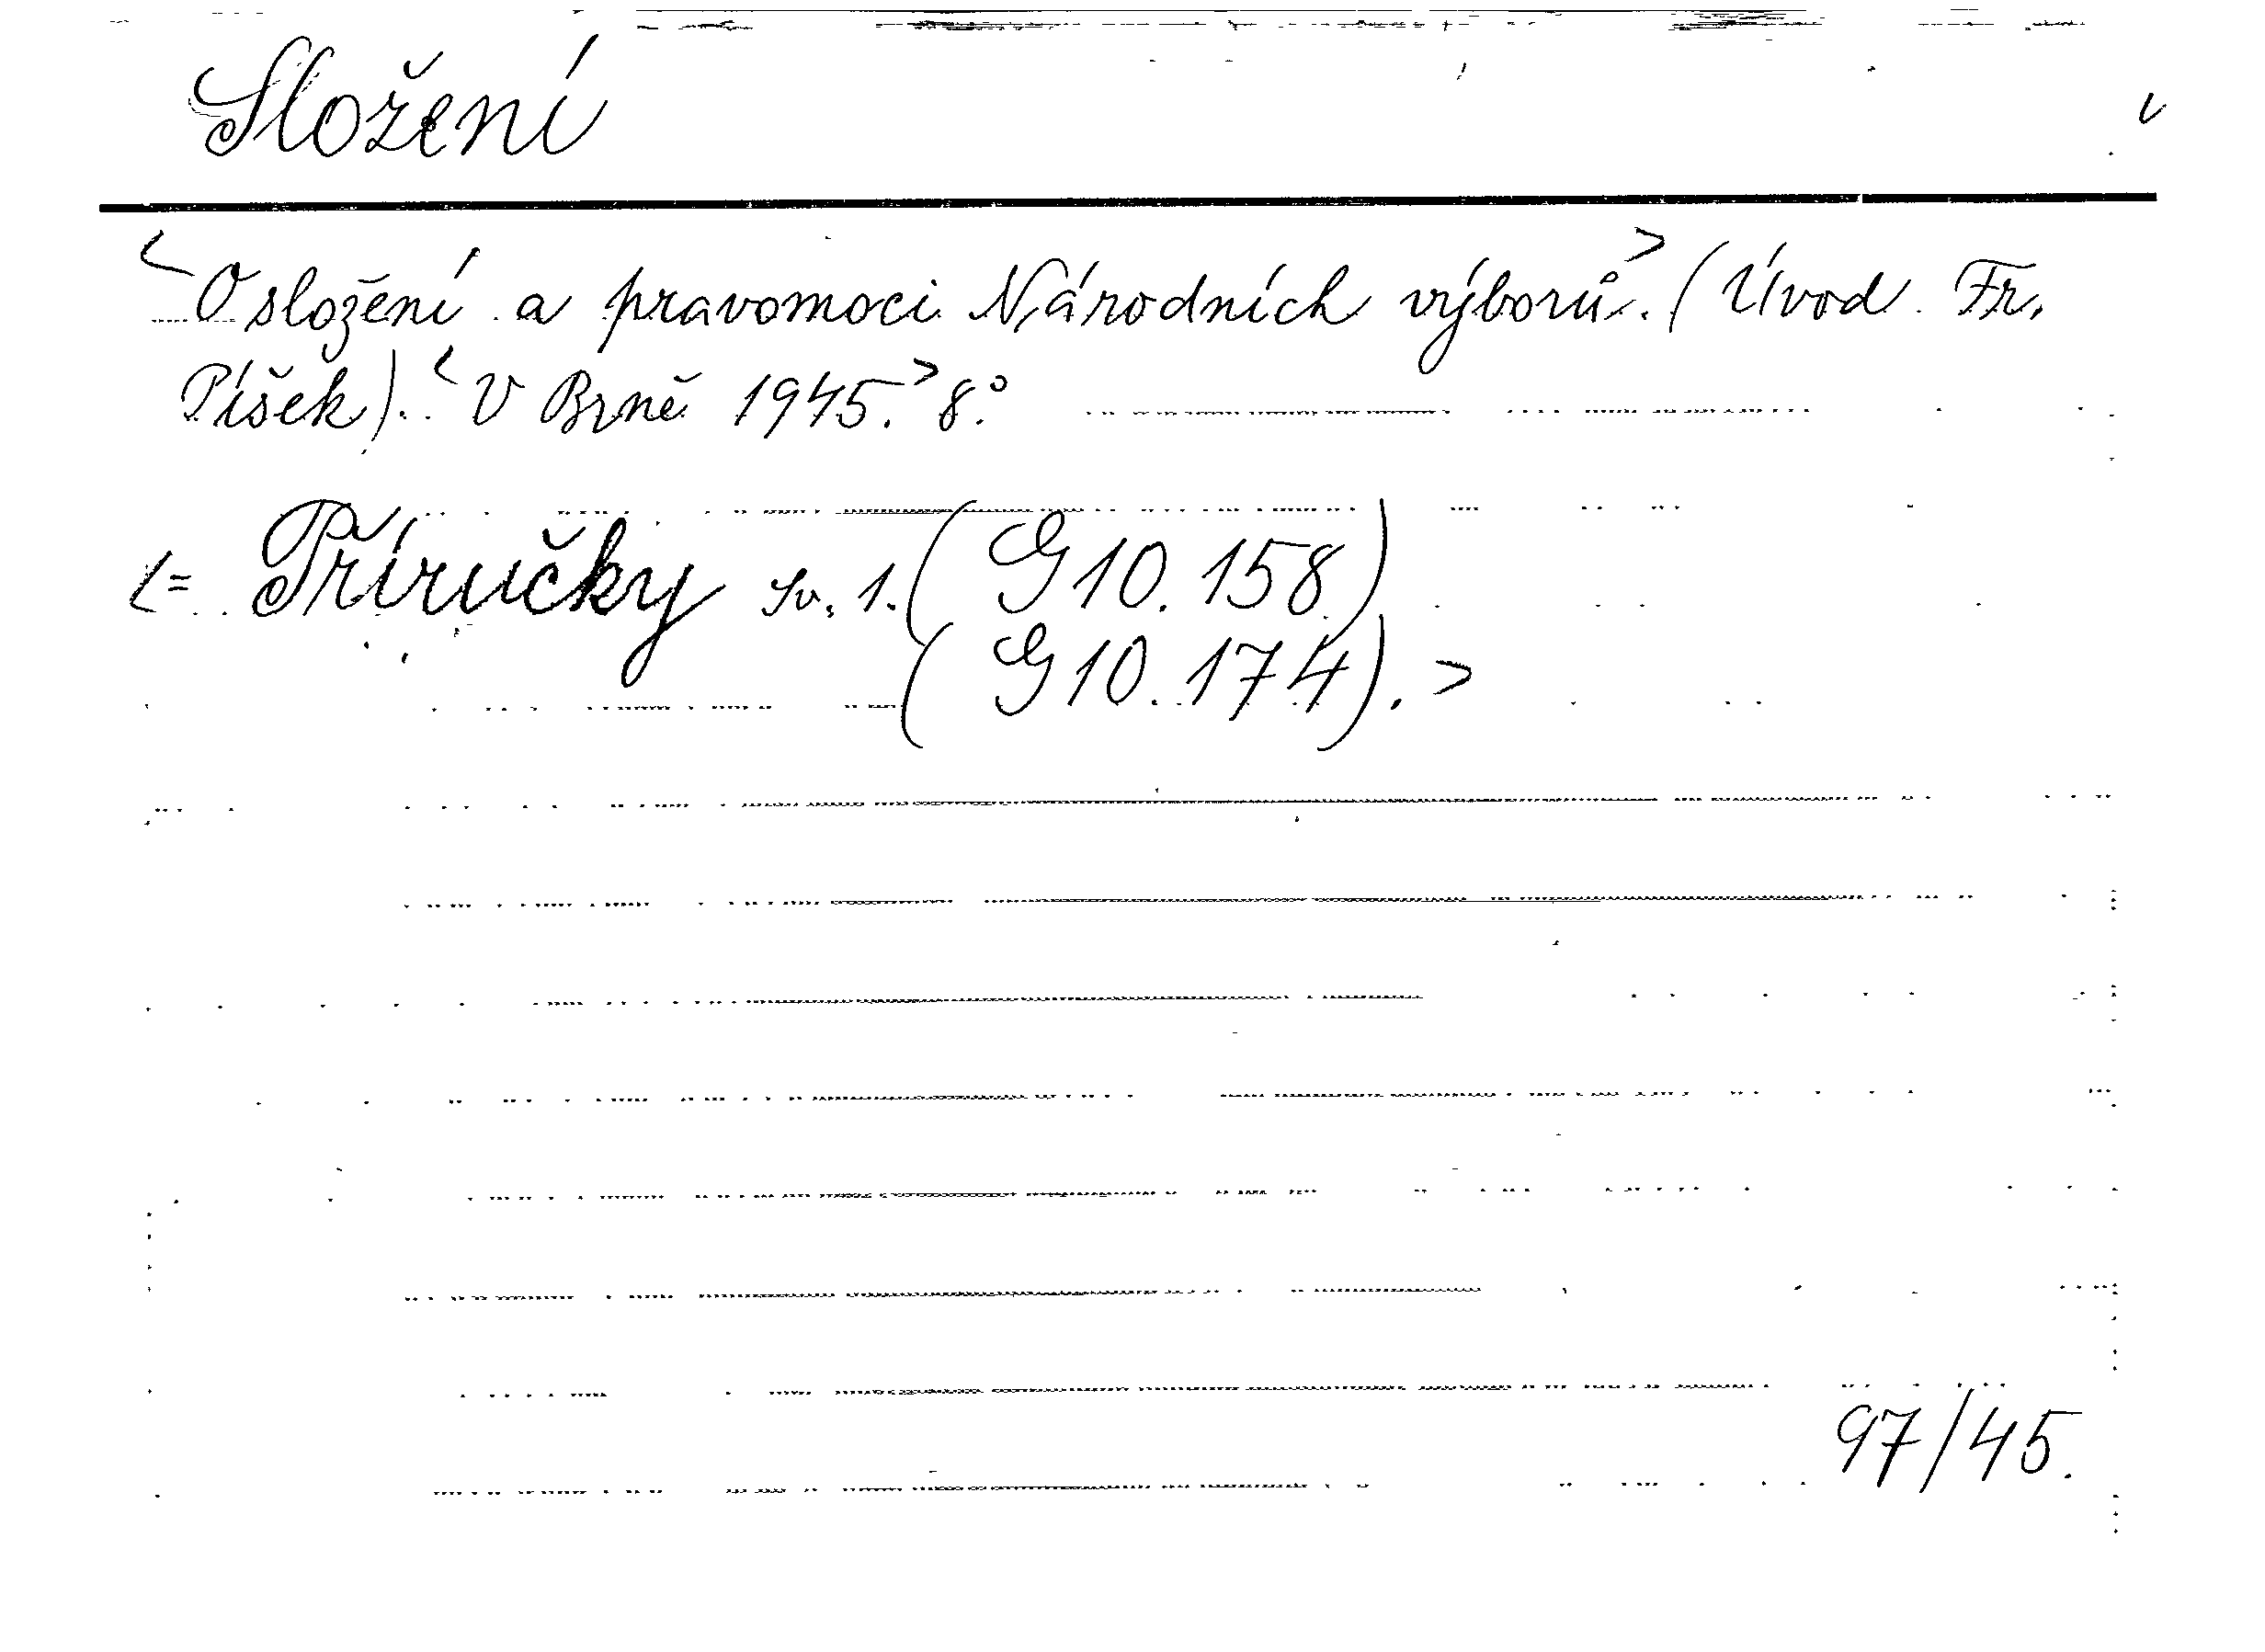 Složení
<O složení a pravomoci Národních výborů.> (Úvod Fr.
Píšek). <V Brně 1945.> 8°.
<= Příručky sv. 1. (G10.158)
(G10.174).>
97/45.